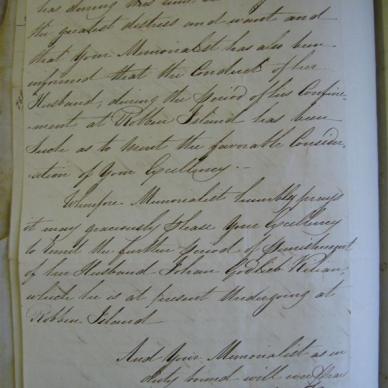 has during this
the greatest distress and want and
that Your Memorialist has also been
informed that the Conduct of her
Husband, during the Period of his Confine-
ment at Robben Island has been
such as to merit the favorable Consider-
ation of Your Excellency.
Wherefore Memorialist humbly prays
it may graciously please Your Excellency
to remit the further Period of Punishment
of her Husband Johan Godlieb
which he is at present Undergoing at
Robben Island
And Your Memorialist as in
duty bound will ever Pray